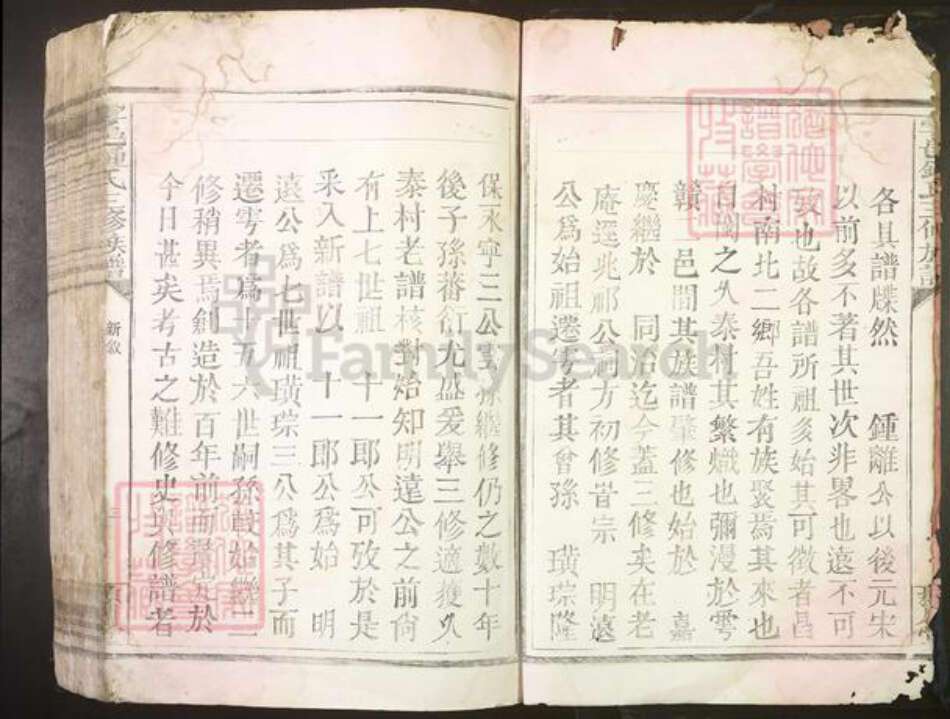 各具譜牒然 鍾離公以後元宋
以前多不著其世次非畧也遠不可
攷也故各譜所祖多始其可徵者昌
村南北二鄉吾姓有族聚焉其來也
自閩之久泰村其繁熾也彌漫於雩
贛二邑間其族譜肇修也始於 嘉
慶繼於 同治迄今蓋三修矣在老
庵逕兆祁公祠方初修旹宗 明遠
公為始祖遷雩者其曾孫 璜琮隆
保永寧三公 孫繼修仍之數十年
後子孫蕃衍尤盛爰舉三修適獲久
泰村老譜核對始知明遠公之前尙
有上七世祖 十一郎公可攷於是
采入新譜以 十一郎公為始 明
遠公為七世祖璜琮三公為其子而
遷雩者為十五六世嗣孫 始繼二
修稍異焉創造於百年前而 於
今日甚矣考古之難修史與修譜者
新敘
鍾氏三修族譜
FamilySearch